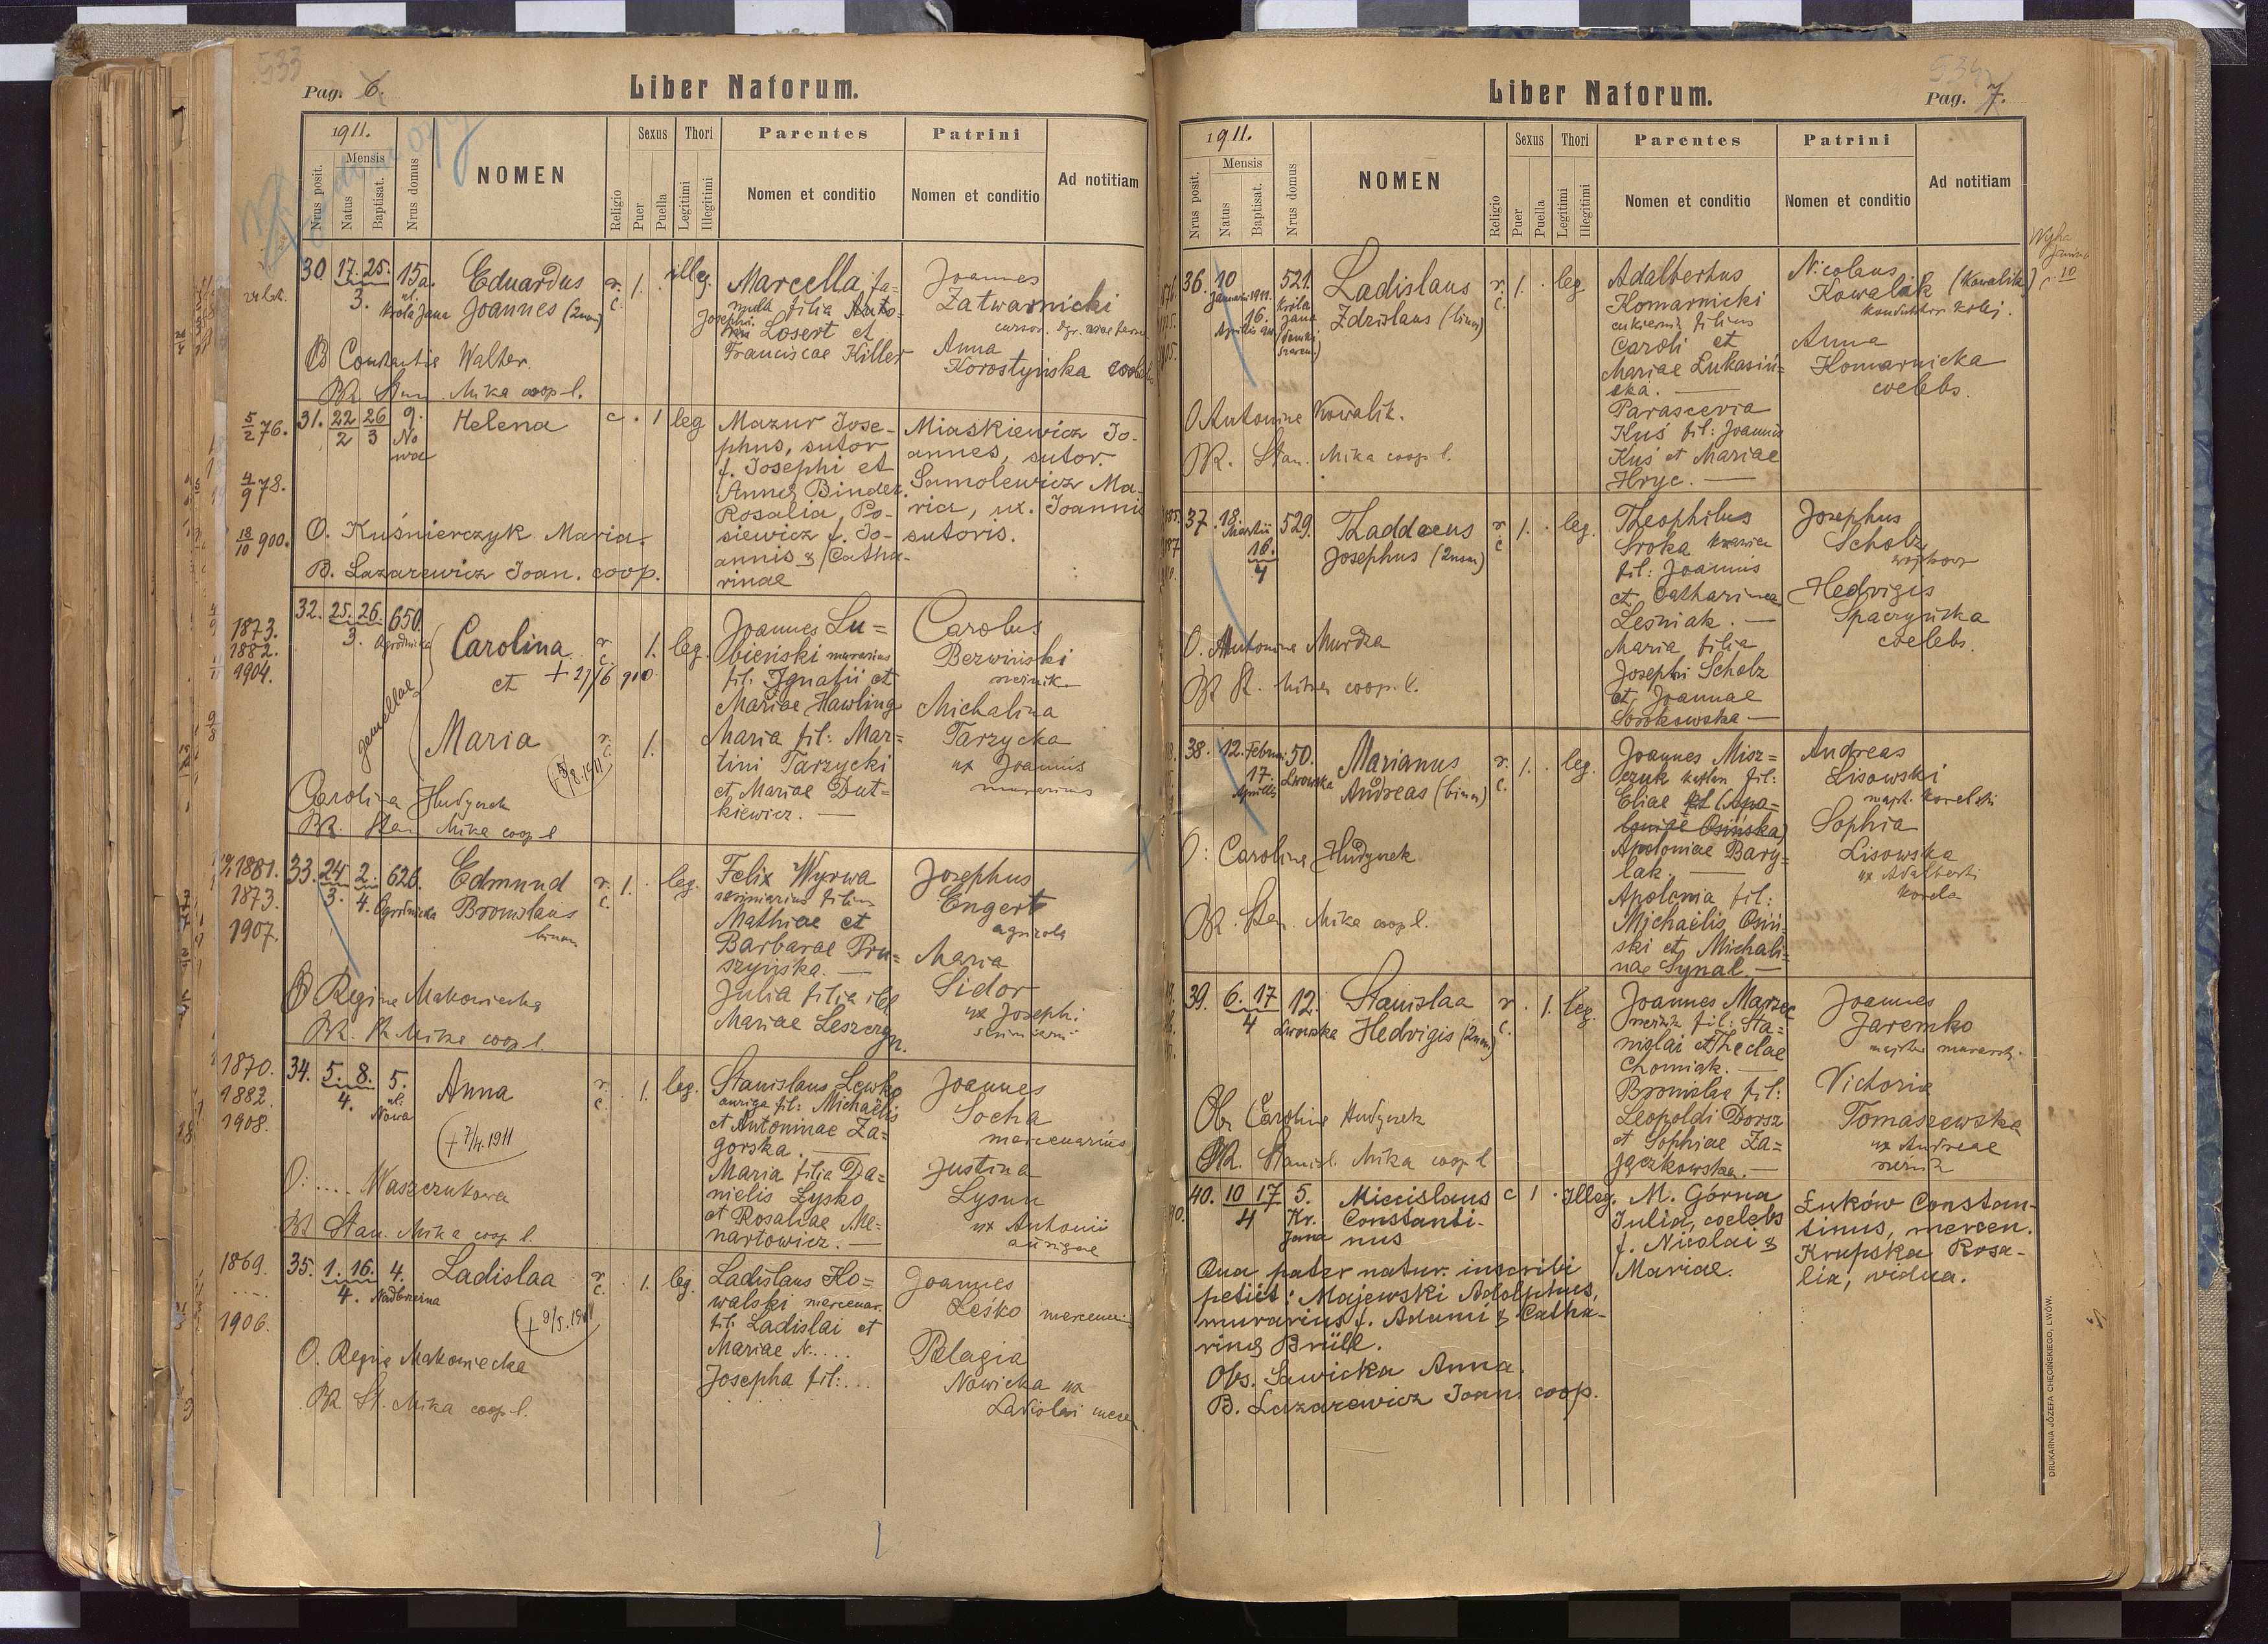 533
Pag. 6.
Liber Natorum.
1911.
Nrus posit.
Mensis
Natus
Baptisat.
Nrus domus
NOMEN
Religio
Sexus
Puer
Puella
Thori
Legitimi
Illegitimi
Parentes
Nomen et conditio
Patrini
Nomen et conditio
Ad notitiam
30 17. 25. 3. 15a. ul. Króla Jana
Eduardus
Joannes (2um)
r. c. 1. illeg.
Marcella fa-
mula filia Anto-
Josephi
Losert et
Franciscae Killer
Joannes
Zatwarnicki
Anna
Korostyńska
Walter.
Mika coop l.
5/2 76.
4/9 78.
18/10 900.
31. 22/2 26/3 9. Nowa
Helena
c. 1 leg
Mazur Jose-
phus, sutor
f. Josephi et
Annę Binder.
Rosalia, Po-
siewicz f. Jo-
annis & Catha-
rinae
Miaśkiewicz Jo-
annes, sutor.
Samolewicz Ma-
ria, ux. Joannis
sutoris.
O. Kuśnierczyk Maria.
B. Lazarewicz Joan. coop.
1873.
1882.
1904.
32. 25. 26. 3. 650. Ogrodnicka
gemellae
Carolina
et
Maria
r. c. 1. leg.
Joannes Lu=
bieński murarius
fil: Ignatii et
Mariae Hawling
Maria fil: Mar=
tini Tarzycki
et Mariae Dut=
kiewicz. —
Carolus
Berwiński
Michalina
Tarzycka
ux Joannis
murarius
Carolina Hudynek
Mika coop l
1881.
1873.
1907.
33. 24. 3. 2. 4. 626. Ogrodnicka
Edmund
Bronislaus
binom
r. c. 1. leg.
Felix Wyrwa
filius
Mathiae et
Barbarae Pru=
szyńska. —
Julia filia ill
Mariae Leszczyn.
Josephus
Engert
agricola
Maria
Sidor
ux Josephi
Regina Makowiecka
St Mika coop l.
1870.
1882.
1908.
34. 5. 8. 4. 5. ul: Nowa
Anna
+ 7/4.1911
r. c. 1. leg.
Stanislaus Lewko
auriga fil: Michaelis
et Antoninae Za=
gorska. —
Maria filia Da=
nielis Łysko
et Rosaliae Me=
nartowicz. —
Joannes
Socha
mercenarius
Justina
Lysun
ux Antonii
aurigae
O: .... Waszczukowa
Stan. Mika coop l.
1869.
.....
1906.
35. 1. 16. 4. 4. Nadbrzeżna
Ladislaa
r. c. 1. leg.
Ladislaus Ko=
walski mercenar.
fil: Ladislai et
Mariae N.....
Josepha fil:...
Joannes
Leśko
Pelagia
Nowicka ux
Ladislai
O. Regina Makowiecka
St. Mika coop l.
Liber Natorum.
Pag. 7.
1911.
Nrus posit.
Mensis
Natus
Baptisat.
Nrus domus
NOMEN
Religio
Sexus
Puer
Puella
Thori
Legitimi
Illegitimi
Parentes
Nomen et conditio
Patrini
Nomen et conditio
Ad notitiam
36. 10 Januarii 1911. 16. Aprilis 521. Króla Jana
Ladislaus
Zdzislaus (binm)
r. c. 1. leg
Adalbertus
Komarnicki
cukiernik filius
Caroli et
Mariae Lukasiń=
ska. —
Parascevia
Kuś fil: Joannis
Kuś et Mariae
Hryc. —
Nicolaus
Kowalik (Kowalik)
konduktor kolej.
Anna
Komarnicka
coelebs.
O Antonina Kowalik.
Stan. Mika coop l.
37. 18. Martii 16. 4 529.
Thaddaeus
Josephus (2num)
r. c 1. leg.
Theophilus
Sroka krawiec
fil: Joannis
et Catharinae
Leśniak. —
Maria filia
Josephi Scholz
et Joannae
Sorokowska —
Josephus
Scholz
Hedvigis
Spaczyńska
coelebs.
O. Antonina Murdza
coop. l.
38. 12. Februar 17. Aprilis 50. Lwowska
Marianus
Andreas (binm)
r. c. 1. leg.
Joannes Misz=
czuk fil:
Eliae et (Apo=
loniae Osińska)
Apoloniae Bary=
lak. —
Apolonia fil:
Michaelis Osiń=
ski et Michali=
nae Synal. —
Andreas
Lisowski
Sophia
Lisowska
ux Adalberti
O: Carolina Hudynek
Stan. Mika coop l.
39. 6. 17 4 12. Lwowska
Stanislaa
Hedvigis (2num)
r. c. 1. leg.
Joannes Marzec
fil: Sta=
nislai et Theclae
Chomiak. —
Bronislaa fil:
Leopoldi Dorsz
et Sophiae Za=
jączkowska. —
Joannes
Jaremko
Victoria
Tomaszewska
ux Andreae
Ob. Carolina Hudynek
Stanisl. Mika coop l
40. 10 17 4 5. Kr. Jana
Miecislaus
Constanti-
nus
c 1 Illeg.
M. Górna
Julia, coelebs
f. Nicolai &
Mariae.
Łuków Constan-
tinus, mercen.
Krupska Rosa-
lia, vidua.
Qua pater natur. inscribi
petiit: Majewski Adolphus,
murarius f. Adami & Catha-
rinę Brüll.
Obs. Sawicka Anna.
B. Lazarewicz Joan. coop.
DRUKARNIA JÓZEFA CHĘCIŃSKIEGO, LWÓW.